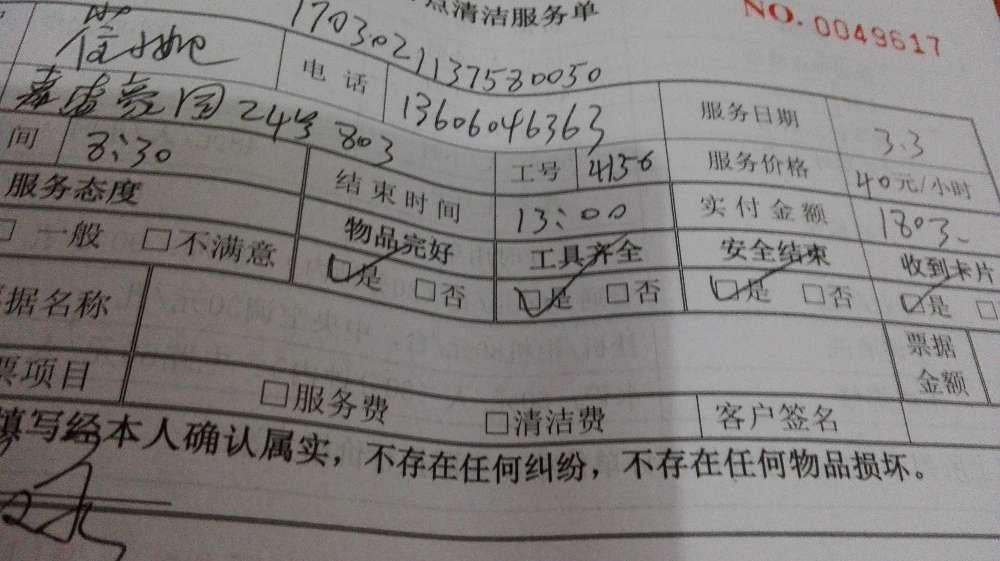 点清洁服务单 NO. 0049617
170302113758005​0
电话 13606046363 服务日期 3.3
豪园24号803
间 8:30 结束时间 13:00 工号 4136 服务价格 40元/小时
实付金额 180
服务态度 物品完好 工具齐全 安全结束 收到卡片
□一般 □不满意 □是 □否 □是 □否 □是 □否 □是 □
据名称 票据金额
票项目 □服务费 □清洁费 客户签名
填写经本人确认属实，不存在任何纠纷，不存在任何物品损坏。